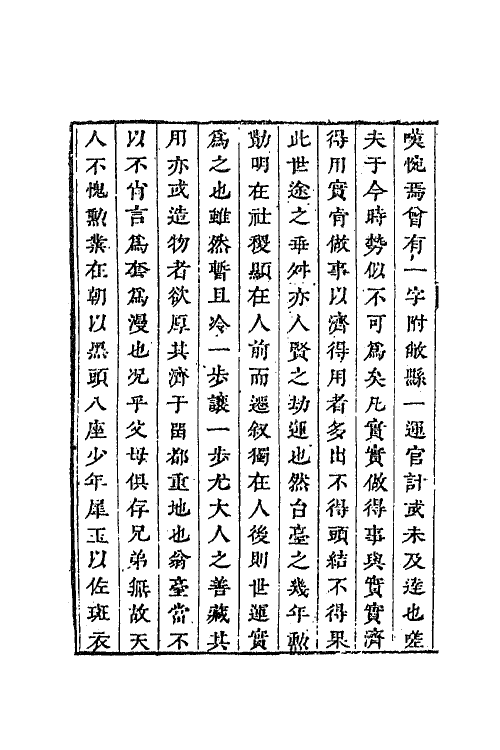 嘆惋焉曾有一字附敝縣一運官計或未及達也嗟
夫于今時勢似不可為矣凡實實做得事與實實濟
得用實肯做事以濟得用者多出不得頭結不得果
此世途之乖舛亦人賢之劫運也然台臺之幾年勲
勩明在社稷顯在人前而遷敘獨在人後則世運實
為之也雖然暫且冷一步讓一步尤大人之善藏其
用亦或造物者欲厚其濟于留都重地也翁臺當不
以不肖言為套為漫也况乎父母俱存兄弟無故天
人不愧勲業在朝以黑頭八座少年犀玉以佐斑衣